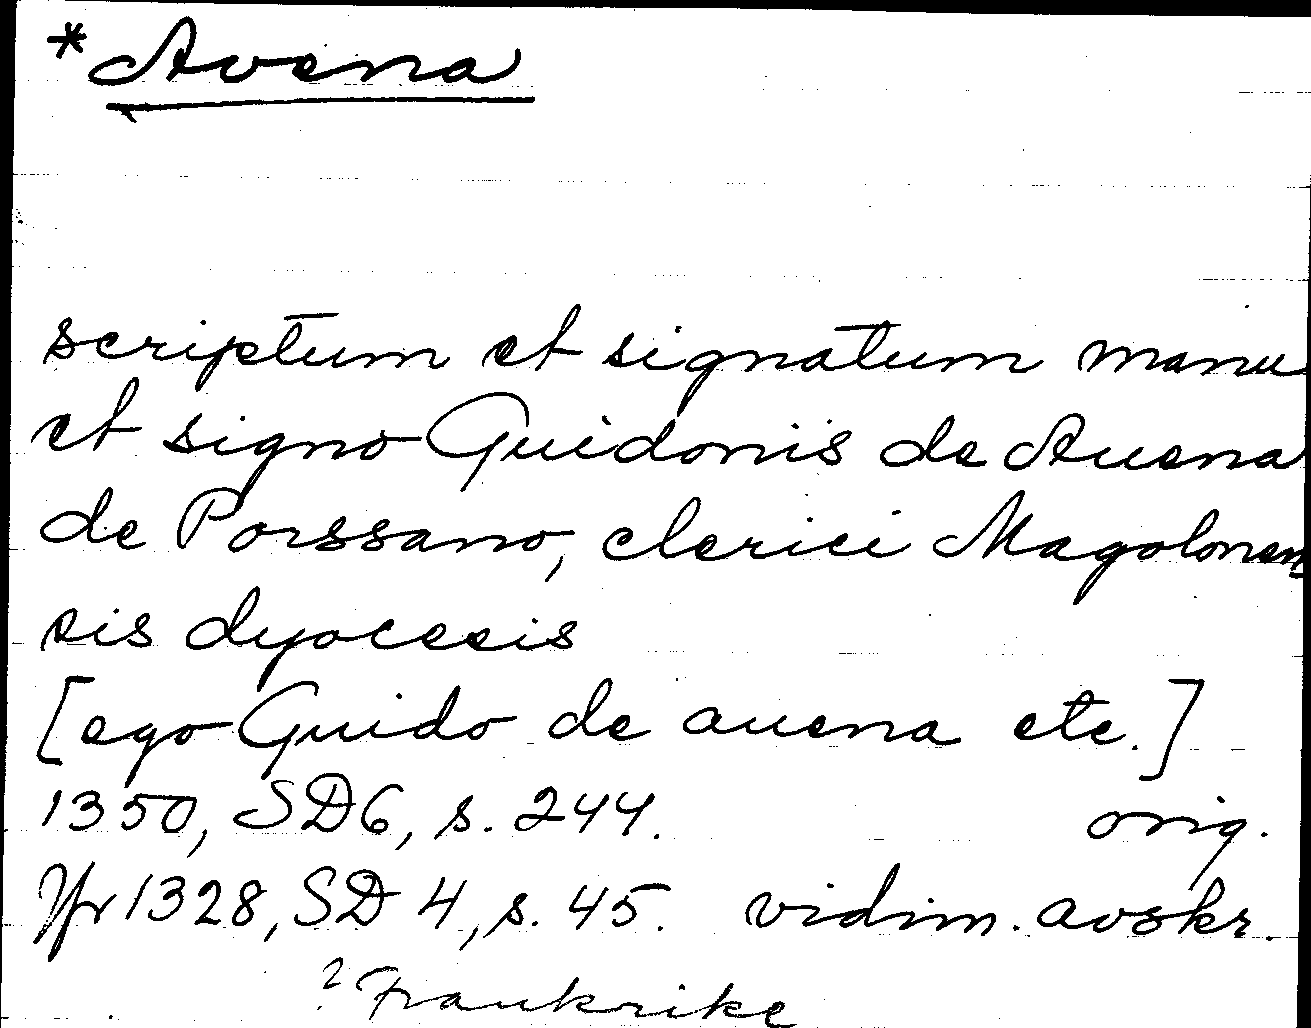 *Avena
scriptum et signatum manu
et signo Guidonis de Auena
de Porssano, clerici Magolonen
sis dyocesis
[ego Guido de auena etc.]
1350, SD6, s. 244. orig.
Jfr 1328, SD 4, s. 45. vidim. avskr.
? Frankrike